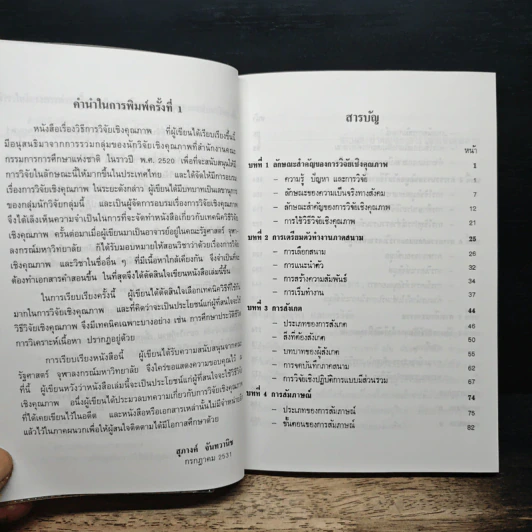 คำนำในการพิมพ์ครั้งที่ 1
หนังสือเรื่องวิธีการวิจัยเชิงคุณภาพ ที่ผู้เขียนได้เรียบเรียงขึ้นนี้
มีอนุสนธิมาจากการรวมกลุ่มของนักวิจัยเชิงคุณภาพที่สำนักงานคณะ
กรรมการการศึกษาแห่งชาติ ในราวปี พ.ศ. 2520 เพื่อที่จะสนับสนุนให้มี
การวิจัยในลักษณะนี้ให้มากขึ้นในประเทศไทย และได้จัดให้มีการอบรม
เรื่องการวิจัยเชิงคุณภาพ ในระยะดังกล่าว ผู้เขียนได้มีบทบาทเป็นเลขานุการ
ของกลุ่มนักวิจัยกลุ่มนี้ และเป็นผู้จัดการอบรมเรื่องการวิจัยเชิงคุณภาพ
จึงได้เล็งเห็นความจำเป็นในการที่จะจัดทำหนังสือเกี่ยวกับเทคนิควิธีวิจัย
เชิงคุณภาพ ครั้นต่อมาเมื่อผู้เขียนมาเป็นอาจารย์อยู่ในคณะรัฐศาสตร์ จุฬา-
ลงกรณ์มหาวิทยาลัย ก็ได้รับมอบหมายให้สอนวิชาว่าด้วยเรื่องการวิจัย
เชิงคุณภาพ และวิชาในชื่ออื่น ๆ ที่มีเนื้อหาใกล้เคียงกัน จึงจำเป็นที่จะ
ต้องทำเอกสารคำสอนขึ้น ในที่สุดจึงได้ตัดสินใจเขียนหนังสือเล่มนี้ขึ้น
ในการเรียบเรียงครั้งนี้ ผู้เขียนได้ตัดสินใจเลือกเทคนิควิธีที่ใช้กัน
มากในการวิจัยเชิงคุณภาพ และที่คิดว่าจะเป็นประโยชน์แก่ผู้ที่สนใจใช้
วิธีวิจัยเชิงคุณภาพ จึงมีเทคนิคเฉพาะบางอย่าง เช่น การศึกษาประวัติชีวิต
การวิเคราะห์เนื้อหา ปรากฏอยู่ด้วย
การเรียบเรียงหนังสือนี้ ผู้เขียนได้รับความสนับสนุนจากคณะ
รัฐศาสตร์ จุฬาลงกรณ์มหาวิทยาลัย จึงใคร่ขอแสดงความขอบคุณไว้ ณ
ที่นี้ ผู้เขียนหวังว่าหนังสือเล่มนี้จะเป็นประโยชน์แก่ผู้ที่สนใจจะใช้วิธีวิจัย
เชิงคุณภาพ อนึ่งผู้เขียนได้ประมวลบทความเกี่ยวกับการวิจัยเชิงคุณภาพ
ที่ได้เคยเขียนไว้ในอดีต และหนังสือหรือเอกสารเหล่านั้นไม่มีจำหน่าย
แล้วไว้ในภาคผนวกเพื่อให้ผู้สนใจติดตามได้มีโอกาสศึกษาด้วย
สุภางค์ จันทวานิช
กรกฎาคม 2531
สารบัญ
หน้า
บทที่ 1 ลักษณะสำคัญของการวิจัยเชิงคุณภาพ 1
- ความรู้ ปัญหา และการวิจัย 1
- ลักษณะของความเป็นจริงทางสังคม 7
- ลักษณะสำคัญของการวิจัยเชิงคุณภาพ 12
- การใช้วิธีวิจัยเชิงคุณภาพ 21
บทที่ 2 การเตรียมตัวทำงานภาคสนาม 25
- การเลือกสนาม 26
- การแนะนำตัว 30
- การสร้างความสัมพันธ์ 34
- การเริ่มทำงาน 37
บทที่ 3 การสังเกต 44
- ประเภทของการสังเกต 45
- สิ่งที่ต้องสังเกต
- บทบาทของผู้สังเกต
- การจดบันทึกภาคสนาม
- การวิจัยเชิงปฏิบัติการแบบมีส่วนร่วม 67
บทที่ 4 การสัมภาษณ์ 74
- ประเภทของการสัมภาษณ์ 75
- ขั้นตอนของการสัมภาษณ์ 82